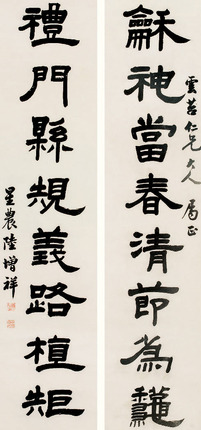 龢神當春清節為龝
雲仁兄大人 屬正
禮門縣規義路植矩
星農陸增祥